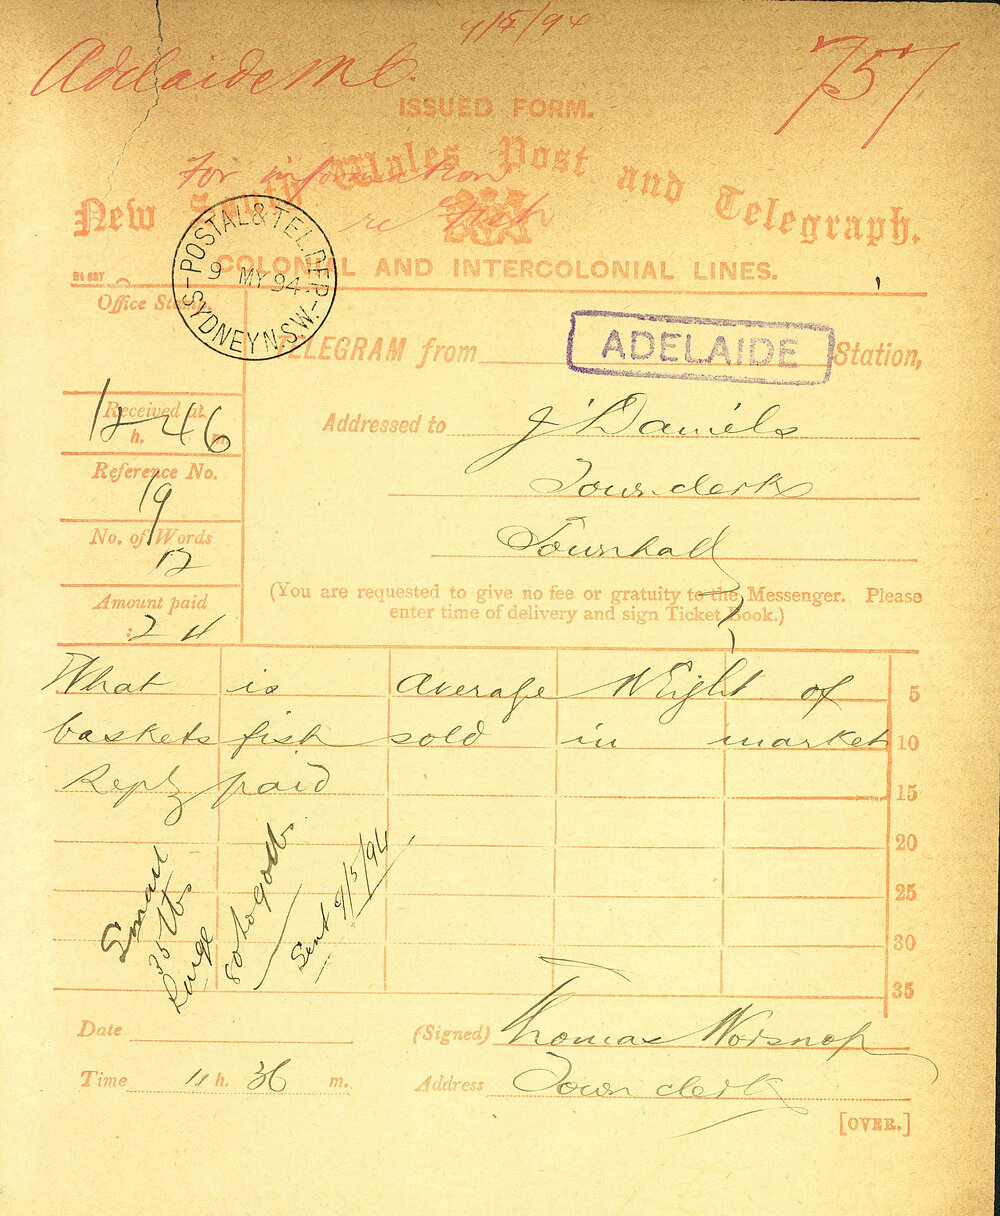 9/5/94
Adelaide M.C.
757
ISSUED FORM.
For information
re fish
New South Wales Post and Telegraph.
COLONIAL AND INTERCOLONIAL LINES.
Bt 687
POSTAL & TEL. DEP.
9 MY 94
SYDNEY N.S.W.
Office Stamp.
TELEGRAM from ADELAIDE Station,
Received at
12 h. 46 m.
Addressed to J Daniels
Town clerk
Townhall
Reference No.
19
No. of Words
12
Amount paid
: 2 4
(You are requested to give no fee or gratuity to the Messenger. Please
enter time of delivery and sign Ticket Book.)
What is average Weight of 5
baskets fish sold in market 10
Reply paid 15
20
25
30
35
Small
35 lbs
Large
80 to 90 lb
Sent 9/5/94
Date
(Signed) Thomas Worsnop
Time 11 h. 36 m.
Address Town clerk
[OVER.]